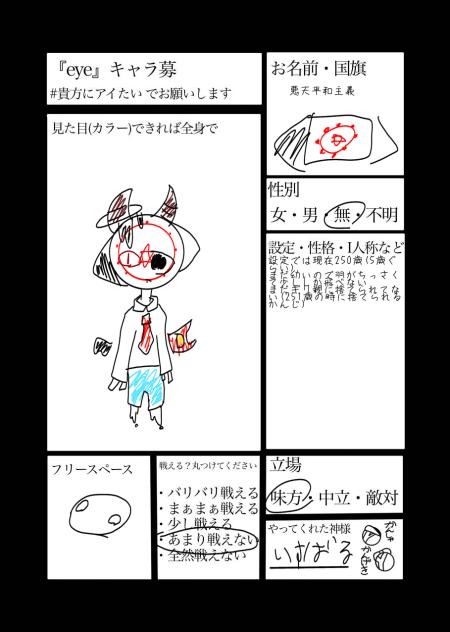 『eye』キャラ募
#貴方にアイたい でお願いします
お名前・国旗
悪天平和主義
見た目(カラー)できれば全身で
性別
女・男・無・不明
設定・性格・1人称など
設定では現在250歳(5歳ぐ
らい)
まだ幼いので羽がちっさく
て少ししか飛べない
まだギリ親に捨てられてな
い(251歳の時に捨てられる
かんじ)
フリースペース
戦える?丸つけてください
・バリバリ戦える
・まぁまぁ戦える
・少し戦える
・あまり戦えない
・全然戦えない
立場
味方・中立・敵対
やってくれた神様
いすばる
かんしゃ
かんげき